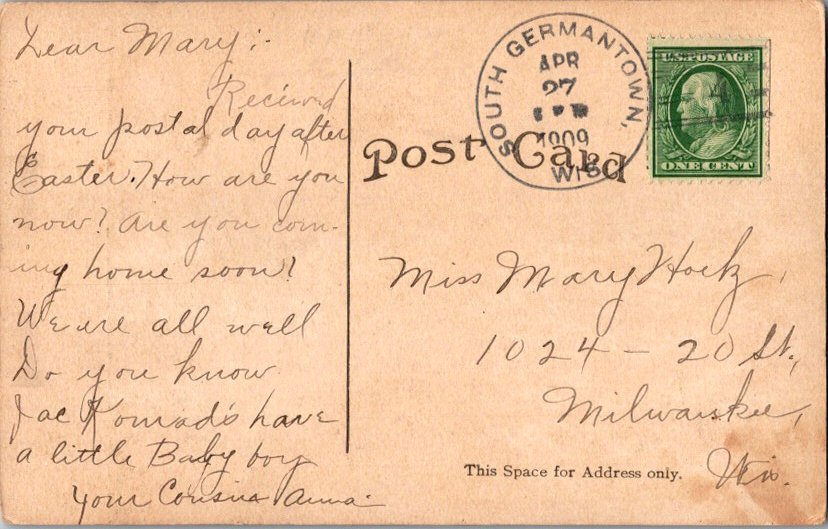 Dear Mary:-
Recieved
your postal day after
Easter. How are you
now? Are you com-
ing home soon?
We are all well
Do you know
Jac Konrad's have
a little Baby boy
Your Cousin Anna.
SOUTH GERMANTOWN,
APR
27
1909
WIS
U.S. POSTAGE
ONE CENT
Post Card
Miss Mary
1024 - 20 St.,
Milwauskee,
Wis.
This Space for Address only.